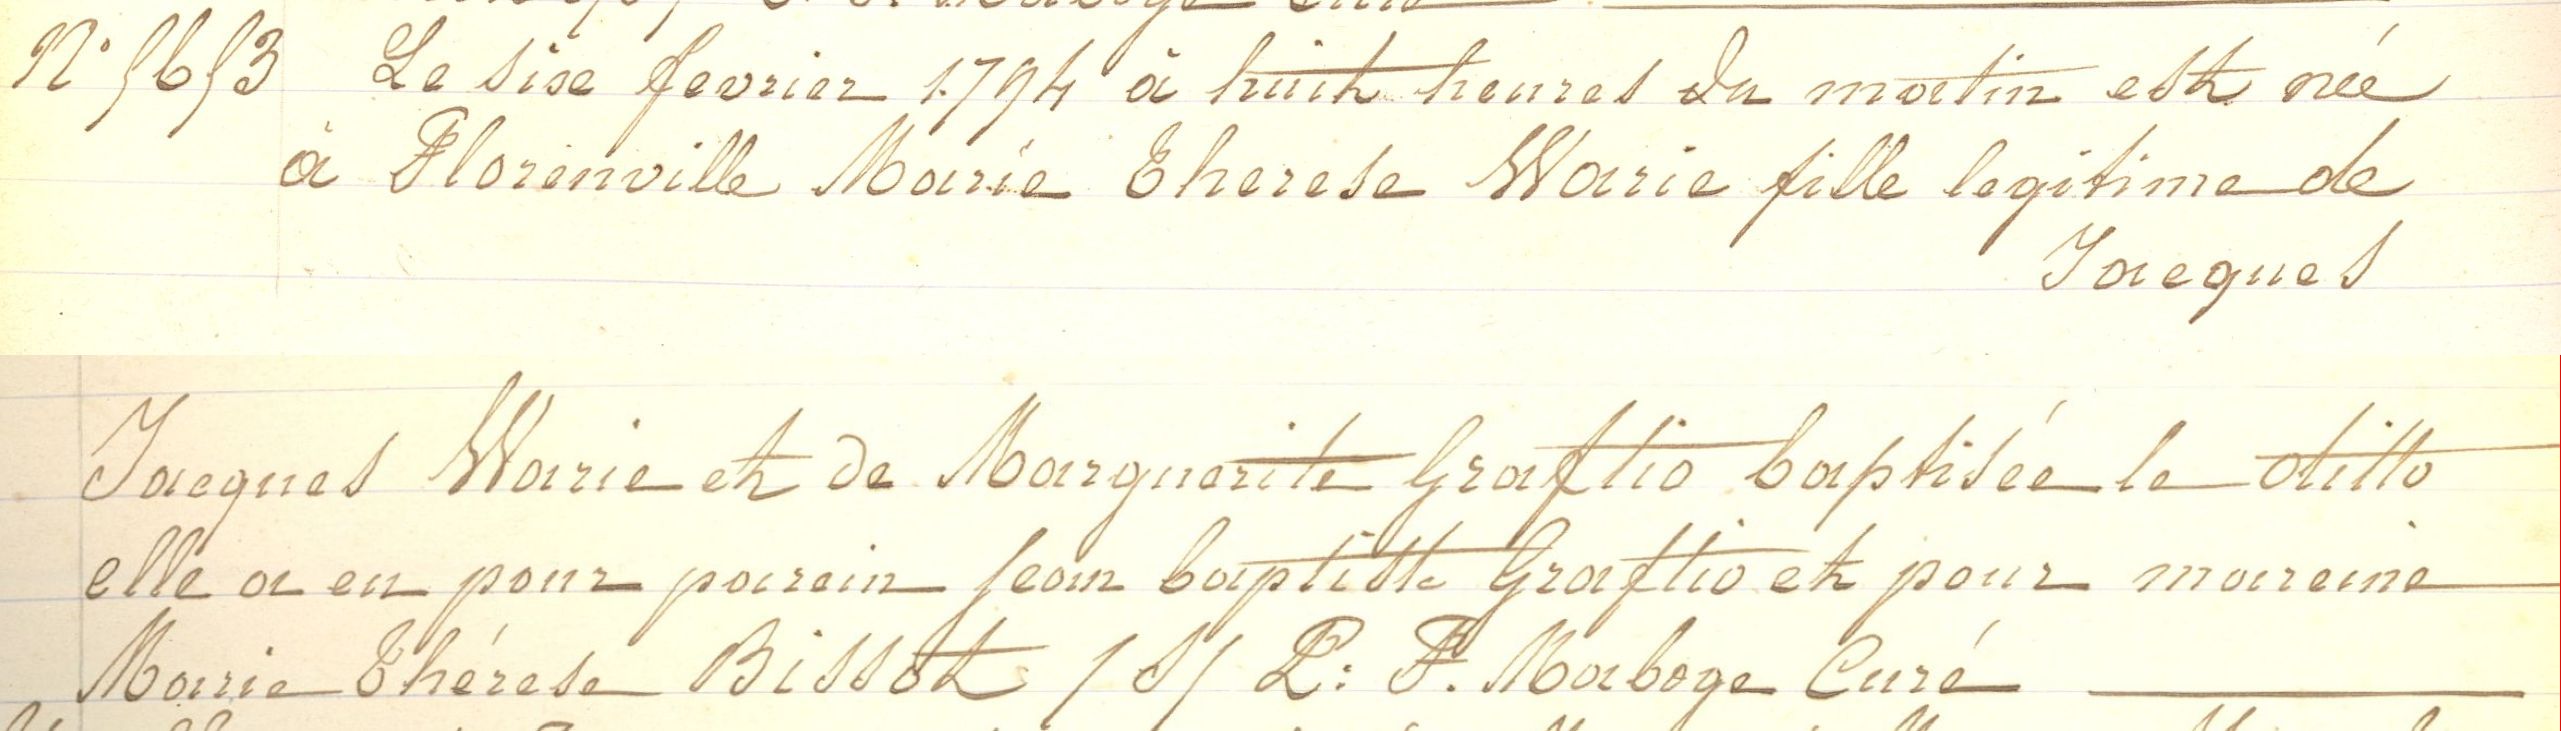 N° 5653 Le sixe fevrier 1794 à huit heures du matin est née
à Florenville Marie Therese Warie fille legitime de
Jacques
Jacques Warie et de Marguerite Graftio baptisée le ditto
elle a eu pour parein Jean baptiste Graftio et pour mareine
Marie Thérese Bissot /S/ P: F. Maboge Curé